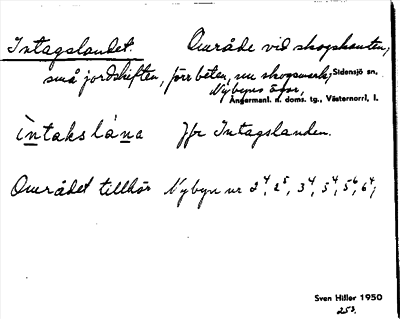 Intagslandet. Område vid skogskanten,
små jordskiften, förr beten, nu skogsmark, Sidensjö sn,
Nybyns ägor,
Ångermanl. n. doms. tg., Västernorrl. l.
ìntakslána Jfr Intagslanden.
Området tillhör Nybyn nr 2⁴, 2⁵, 3⁴, 5⁴, 5⁶, 6⁴,
Sven Hiller 1950
253.